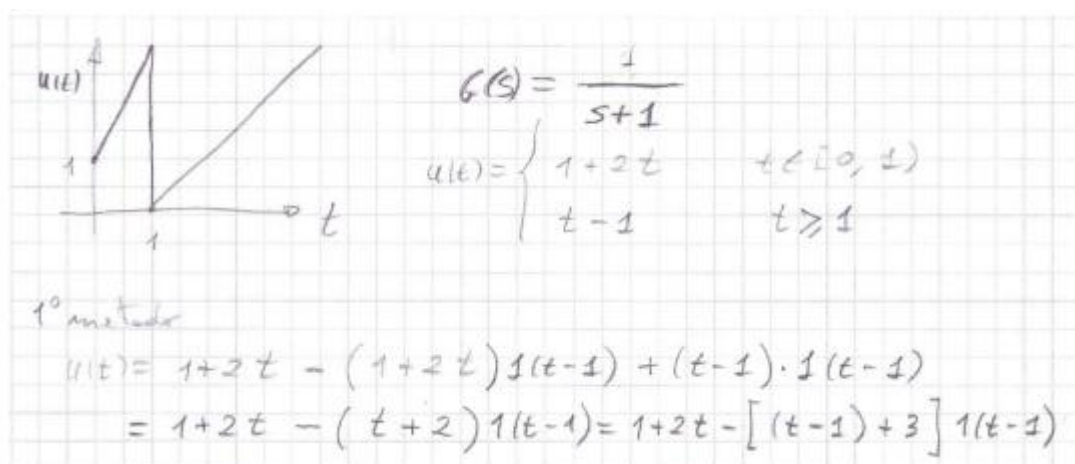 u(t)
1
1
t
G(s) = 1/(s+1)
u(t) = { 1+2t    t ∈ [0, 1)
t-1    t ⩾ 1
1° metodo
u(t) = 1+2t - (1+2t)1(t-1) + (t-1)·1(t-1)
= 1+2t - (t+2)1(t-1) = 1+2t - [(t-1)+3]1(t-1)